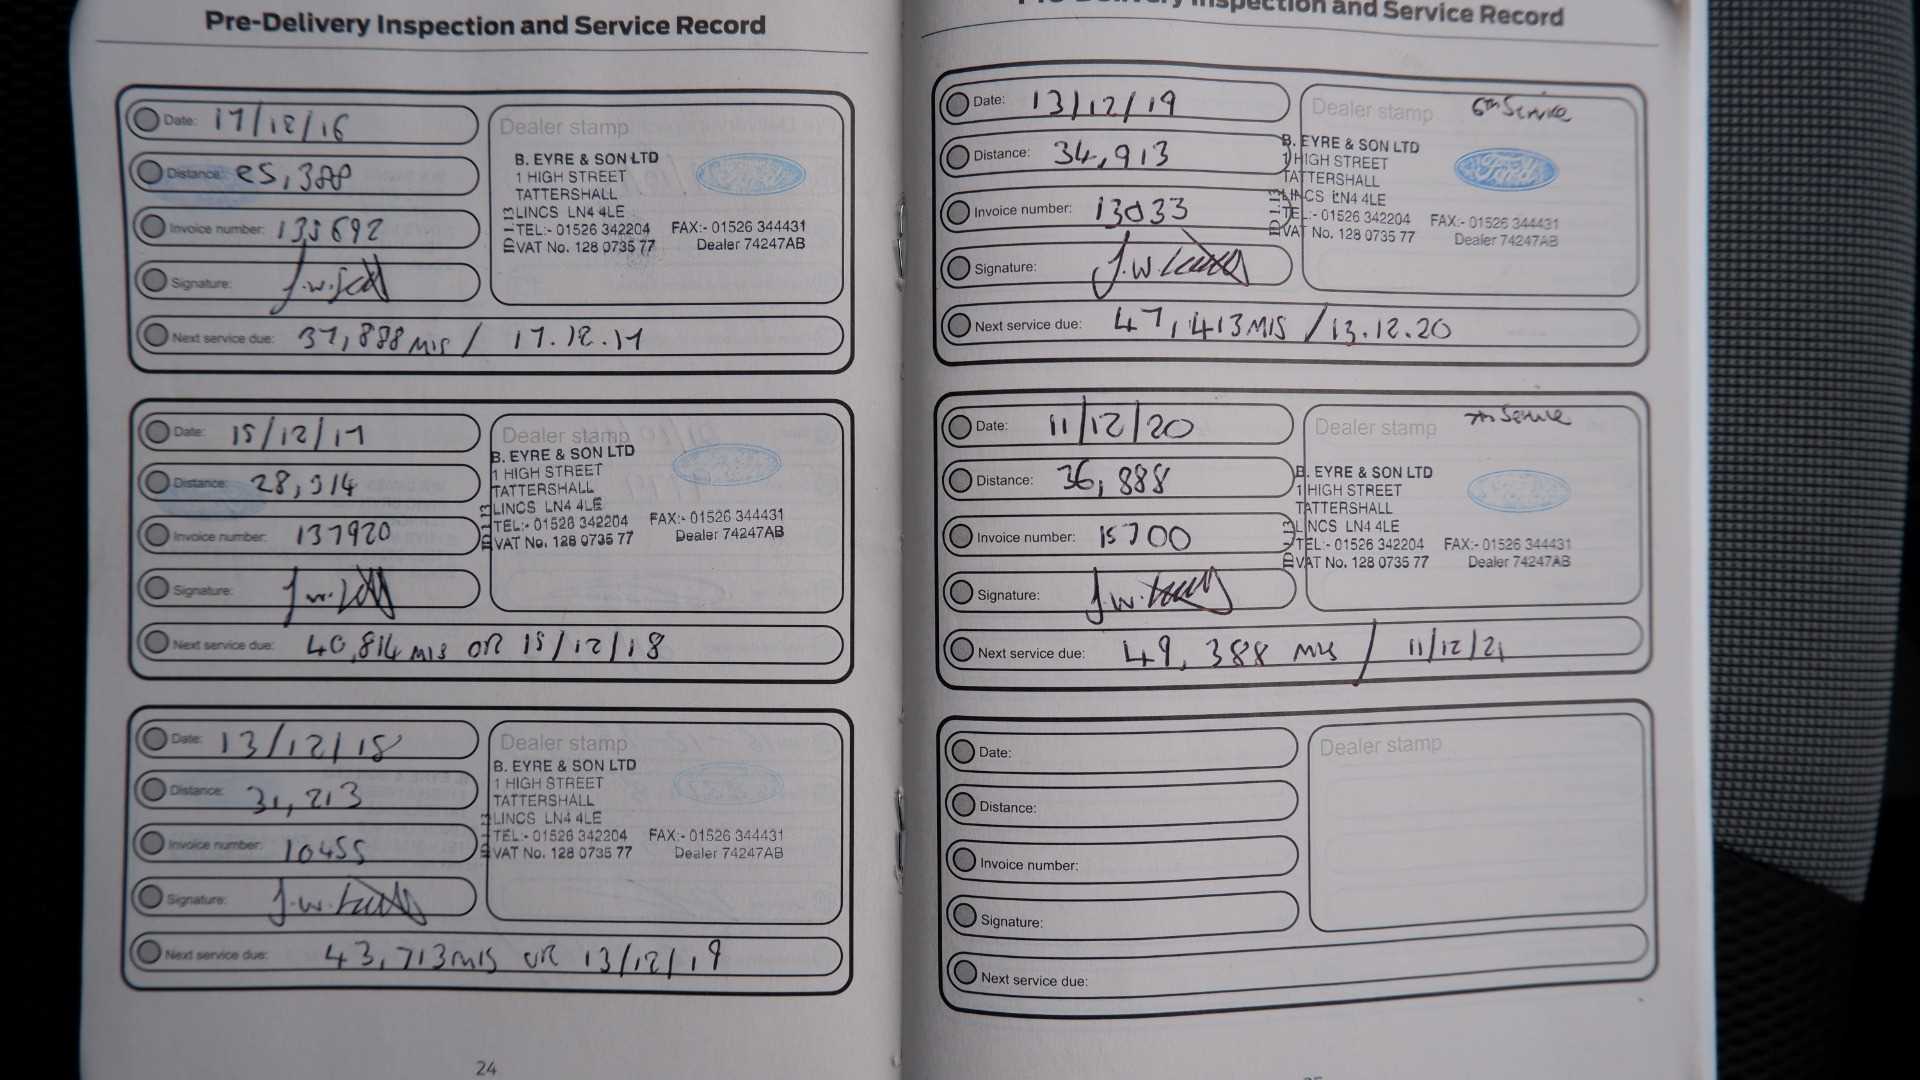 Pre-Delivery Inspection and Service Record
Date: 17/12/16
Distance: 25,388
Invoice number: 135692
Signature:
Next service due: 37,888 MIS / 17.12.17
Dealer stamp
B. EYRE & SON LTD
1 HIGH STREET
TATTERSHALL
LINCS LN4 4LE
TEL:- 01526 342204 FAX:- 01526 344431
VAT No. 128 0735 77 Dealer 74247AB
Date: 15/12/17
Distance: 28,314
Invoice number: 137920
Signature:
Next service due: 40,814 MIS OR 15/12/18
Dealer stamp
B. EYRE & SON LTD
1 HIGH STREET
TATTERSHALL
LINCS LN4 4LE
TEL:- 01526 342204 FAX:- 01526 344431
VAT No. 128 0735 77 Dealer 74247AB
Date: 13/12/18
Distance: 31,213
Invoice number: 10455
Signature:
Next service due: 43,713 MIS OR 13/12/19
Dealer stamp
B. EYRE & SON LTD
1 HIGH STREET
TATTERSHALL
LINCS LN4 4LE
TEL:- 01526 342204 FAX:- 01526 344431
VAT No. 128 0735 77 Dealer 74247AB
24
Inspection and Service Record
Date: 13/12/19
Distance: 34,913
Invoice number: 13033
Signature:
Next service due: 47,413 MIS / 13.12.20
Dealer stamp 6th Service
B. EYRE & SON LTD
1 HIGH STREET
TATTERSHALL
LINCS LN4 4LE
Ford
TEL:- 01526 342204 FAX:- 01526 344431
VAT No. 128 0735 77 Dealer 74247AB
Date: 11/12/20
Distance: 36,888
Invoice number: 15700
Signature:
Next service due: 49,388 MIS / 11/12/21
Dealer stamp 7th Service
B. EYRE & SON LTD
1 HIGH STREET
TATTERSHALL
LINCS LN4 4LE
TEL:- 01526 342204 FAX:- 01526 344431
VAT No. 128 0735 77 Dealer 74247AB
Date:
Distance:
Invoice number:
Signature:
Next service due:
Dealer stamp